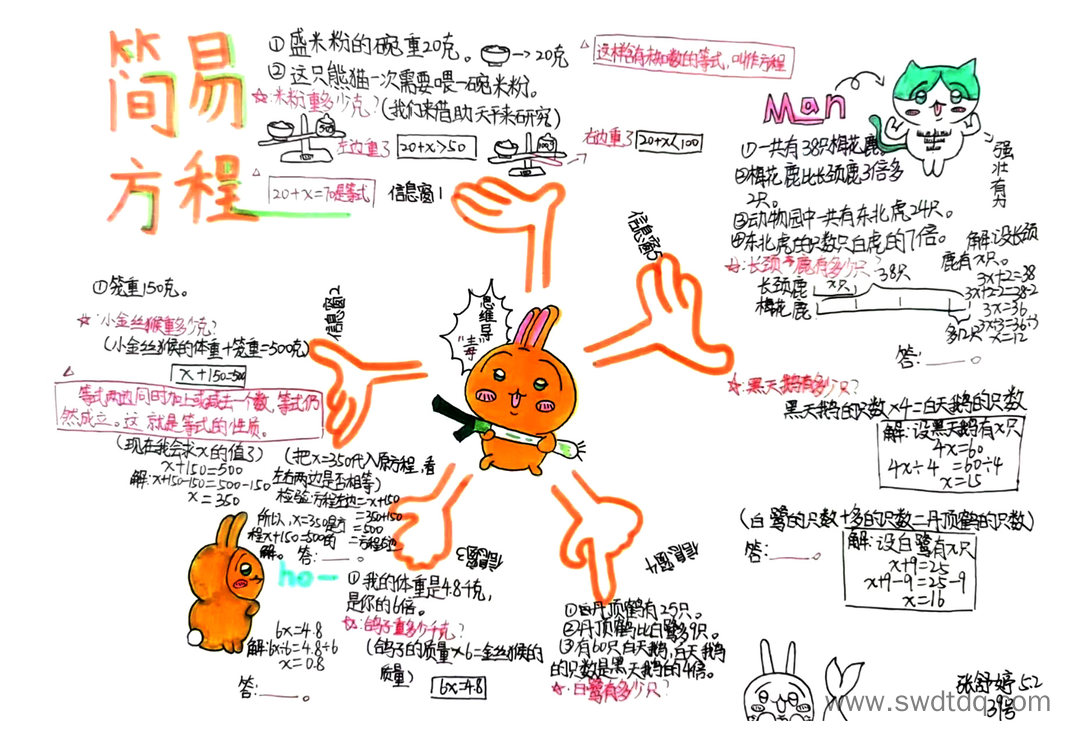 简易
方程
①盛米粉的碗重20克。 →20克
②这只熊猫一次需要喂一碗米粉。
☆:米粉重多少克?(我们来借助天平来研究)
左边重了 20+x>50
右边重了 20+x<100
△ 20+x=70是等式
信息窗1
△ 这样含有未知数的等式,叫作方程
Man
强壮有力
①一共有38只梅花鹿
②梅花鹿比长颈鹿3倍多
2只。
③动物园中一共有东北虎24只。
④东北虎的只数只白虎的7倍。
☆:长颈鹿有多少只?
38只
长颈鹿 x只
梅花鹿
多2只
解:设长颈
鹿有x只。
3x+2=38
3x+2-2=38-2
3x=36
3x÷3=36÷3
x=12
答:____。
信息窗5
☆:黑天鹅有多少只?
黑天鹅的只数×4=白天鹅的只数
解:设黑天鹅有x只
4x=60
4x÷4=60÷4
x=15
(白鹭的只数+多的只数=丹顶鹤的只数)
答:____。
解:设白鹭有x只
x+9=25
x+9-9=25-9
x=16
思维导
"毒"
①笼重150克。
信息窗2
☆:小金丝猴重多少克?
(小金丝猴的体重+笼重=500克)
x+150=500
△
等式两边同时加上或减去一个数,等式仍
然成立。这就是等式的性质。
(现在我会求x的值了)
x+150=500
解:x+150-150=500-150
x=350
(把x=350代入原方程,看
左右两边是否相等)
检验:方程左边=x+150
=350+150
=500
=方程右边
所以,x=350是方
程x+150=500的
解。 答:____。
ho-
信息窗3
①我的体重是4.8千克,
是你的6倍。
☆:鸽子重多少千克?
(鸽子的质量×6=金丝猴的
质量)
6x=4.8
6x=4.8
解:6x÷6=4.8÷6
x=0.8
答:____。
信息窗4
①丹顶鹤有25只。
②丹顶鹤比白鹭多9只。
③有60只白天鹅,白天鹅
的只数是黑天鹅的4倍。
☆:白鹭有多少只?
张舒婷 5.2
39号
www.swdtdq.com